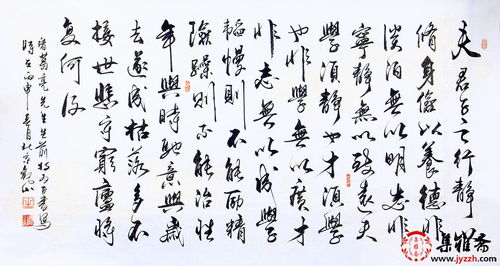 夫君子之行静
脩身儉以養德非
淡泊無以明志非
寧静無以致遠夫
學須静也才須學
也非學無以廣才
非志無以成學
韜慢則不能勵精
險躁則不能治性
年與時馳意與歲
去遂成枯落多不
接世悲守窮廬將
復何及
諸葛亮先生生前
時在丙申春月於京
集雅斋
www.jyzzh.com